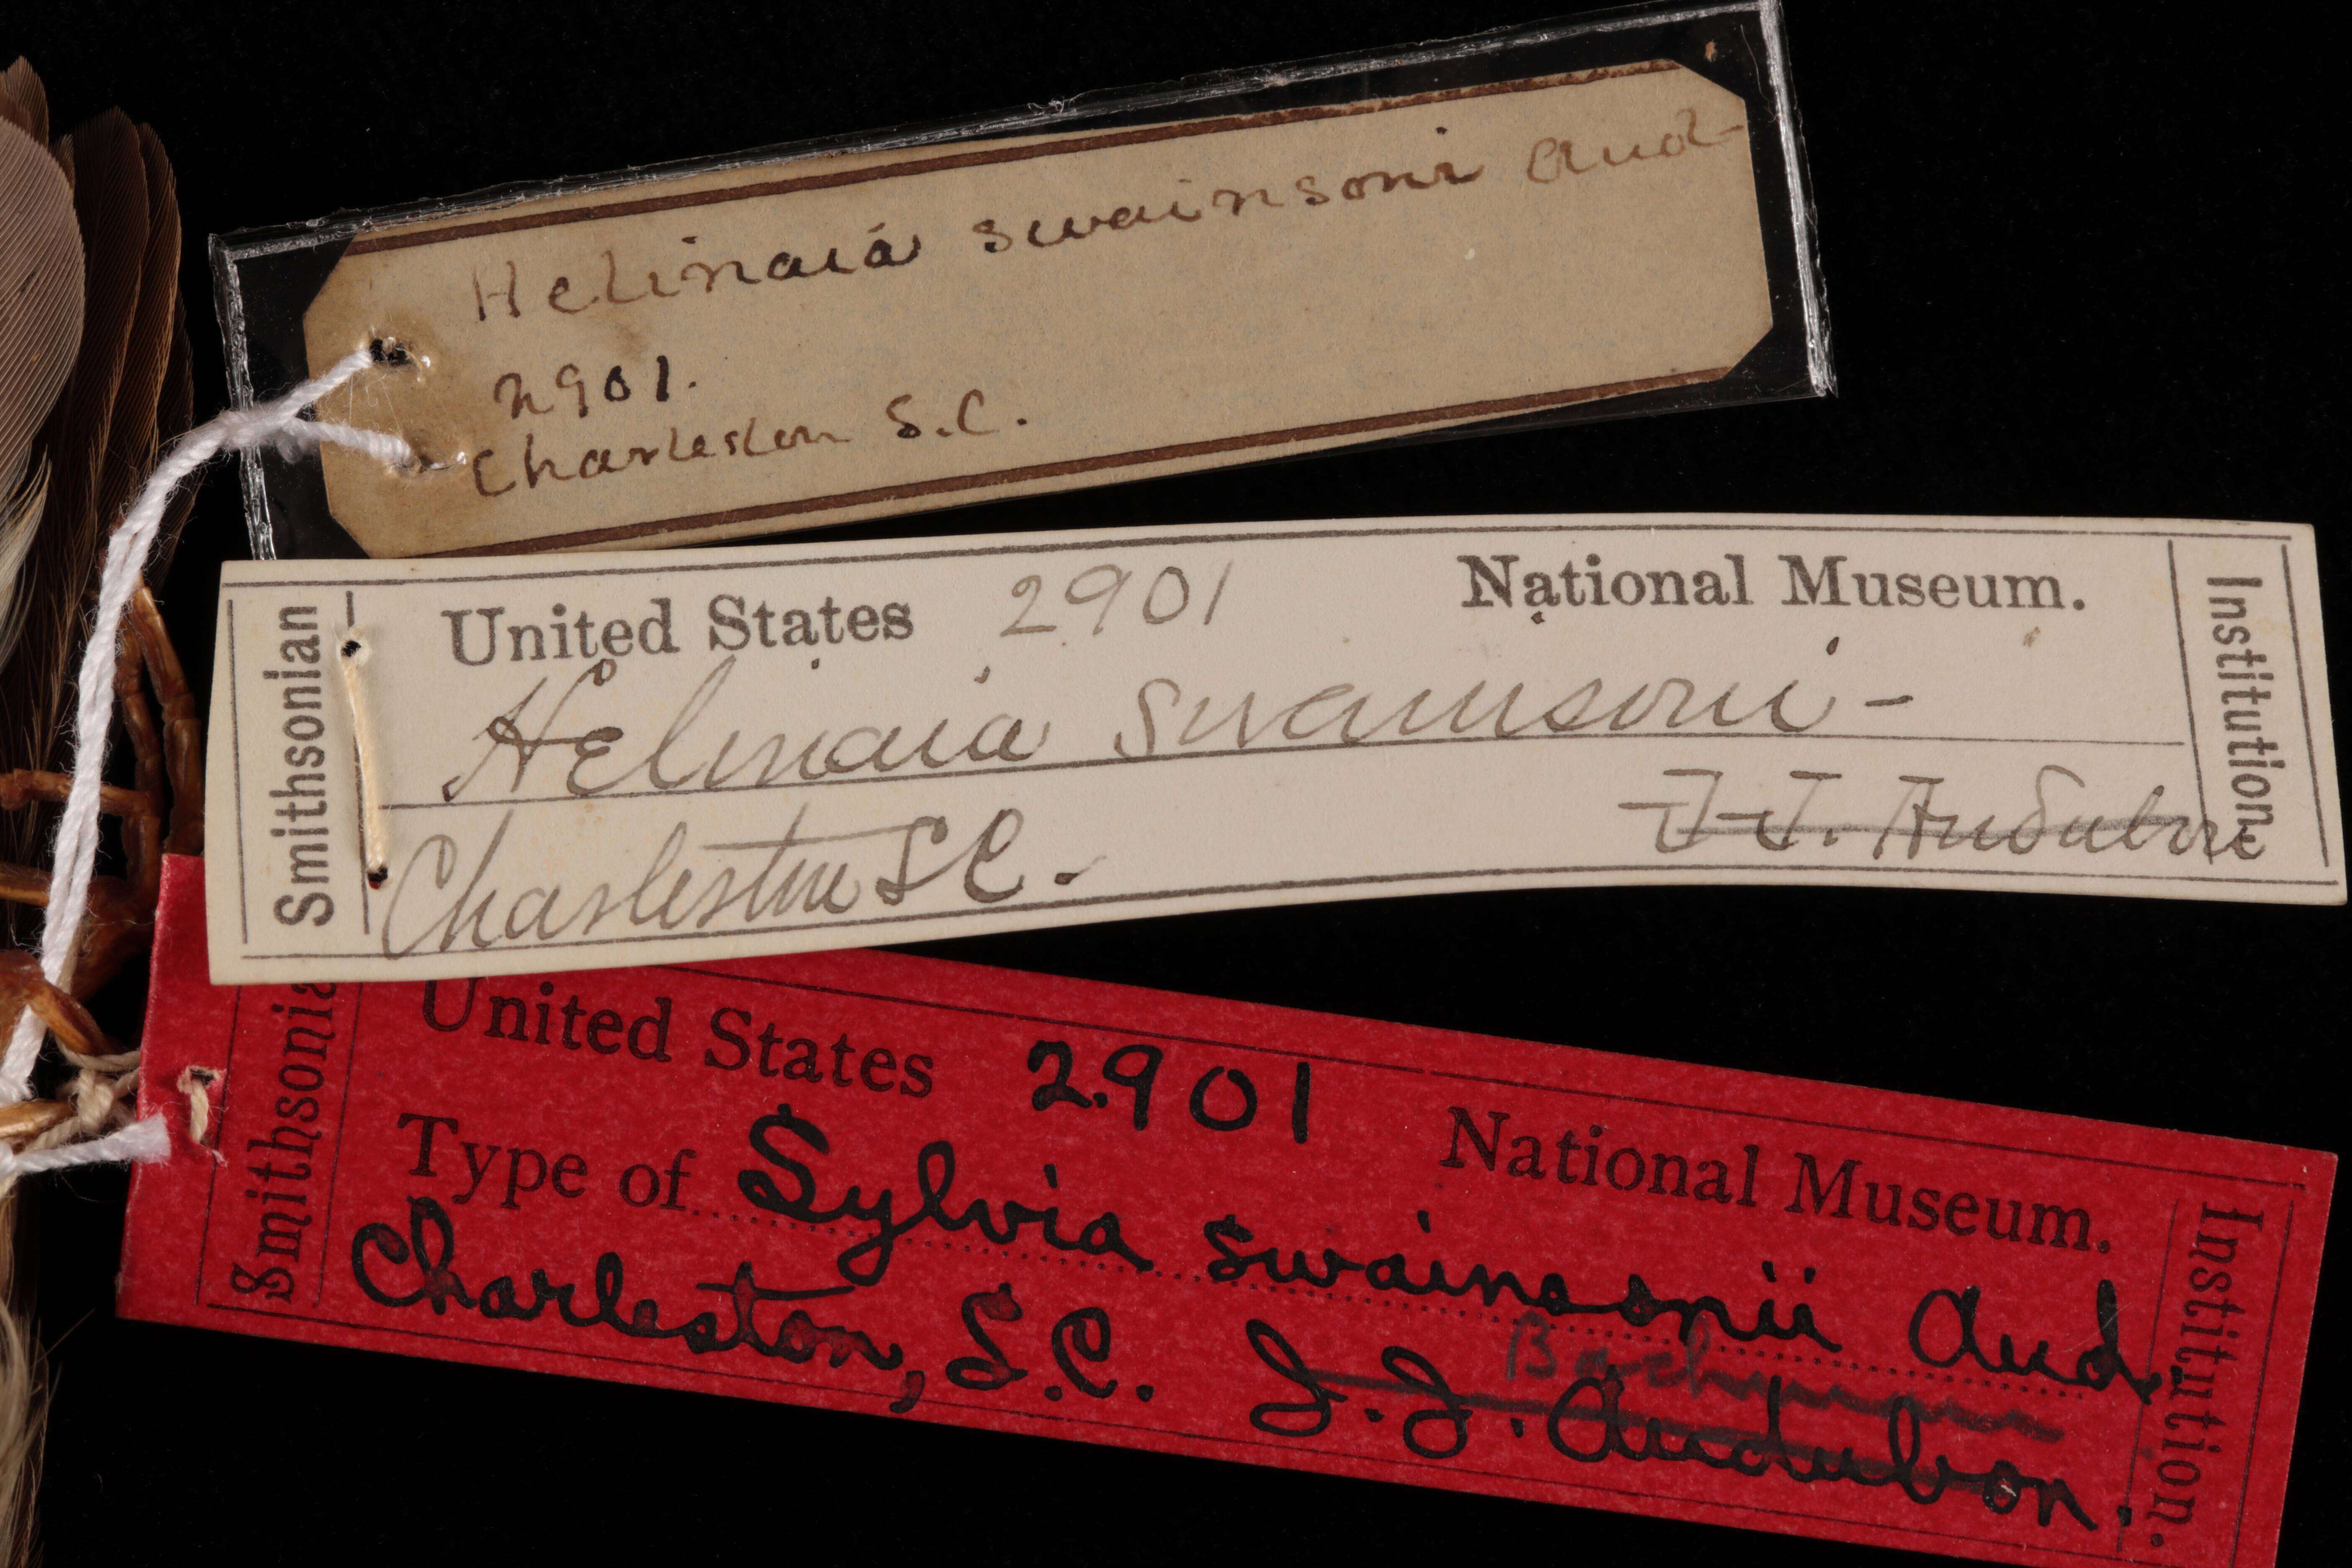 Helinaia swainsoni Aud
2901.
Charleston S.C.
Smithsonian
United States 2901 National Museum.
Helinaia swainsoni -
Charleston S C. J. J. Audubon
Institution
Smithsonia
United States 2901 National Museum.
Type of Sylvia swainsonii Aud.
Bachman
Charleston, S.C. J. J. Audubon.
Institution.